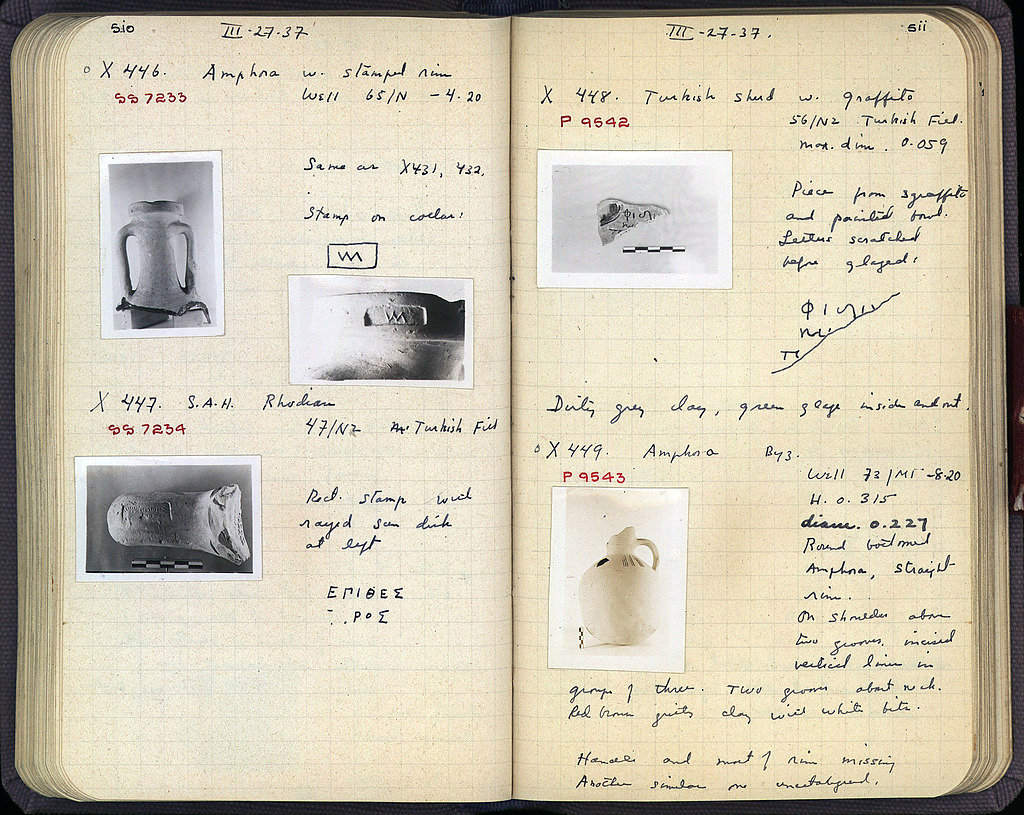 510
III-27-37
X 446. Amphora w. stamped rim
SS 7233
Well 65/N -4.20
Same as X431, 432.
Stamp on collar:
X 447. S.A.H. Rhodian
SS 7234
47/NZ Turkish Fill
Rect. stamp with
rayed sun disk
at left
ΕΠΙΘΕΣ
. . ΡΟΣ
511
III-27-37.
X 448. Turkish sherd w. graffito
P 9542
56/NZ Turkish Fill.
max. dim. 0.059
Piece from sgraffito
and painted bowl.
Letters scratched
before glazed:
Dirty grey clay, green glaze inside and out.
X 449. Amphora Byz.
P 9543
Well 73/ΜΓ -8.20
H. 0.315
diam. 0.227
Round bottomed
Amphora, straight
rim.
On shoulder above
two grooves, incised
vertical lines in
groups of three. Two grooves about neck.
Red brown gritty clay with white bits.
Handle and most of rim missing
Another similar one uncatalogued.